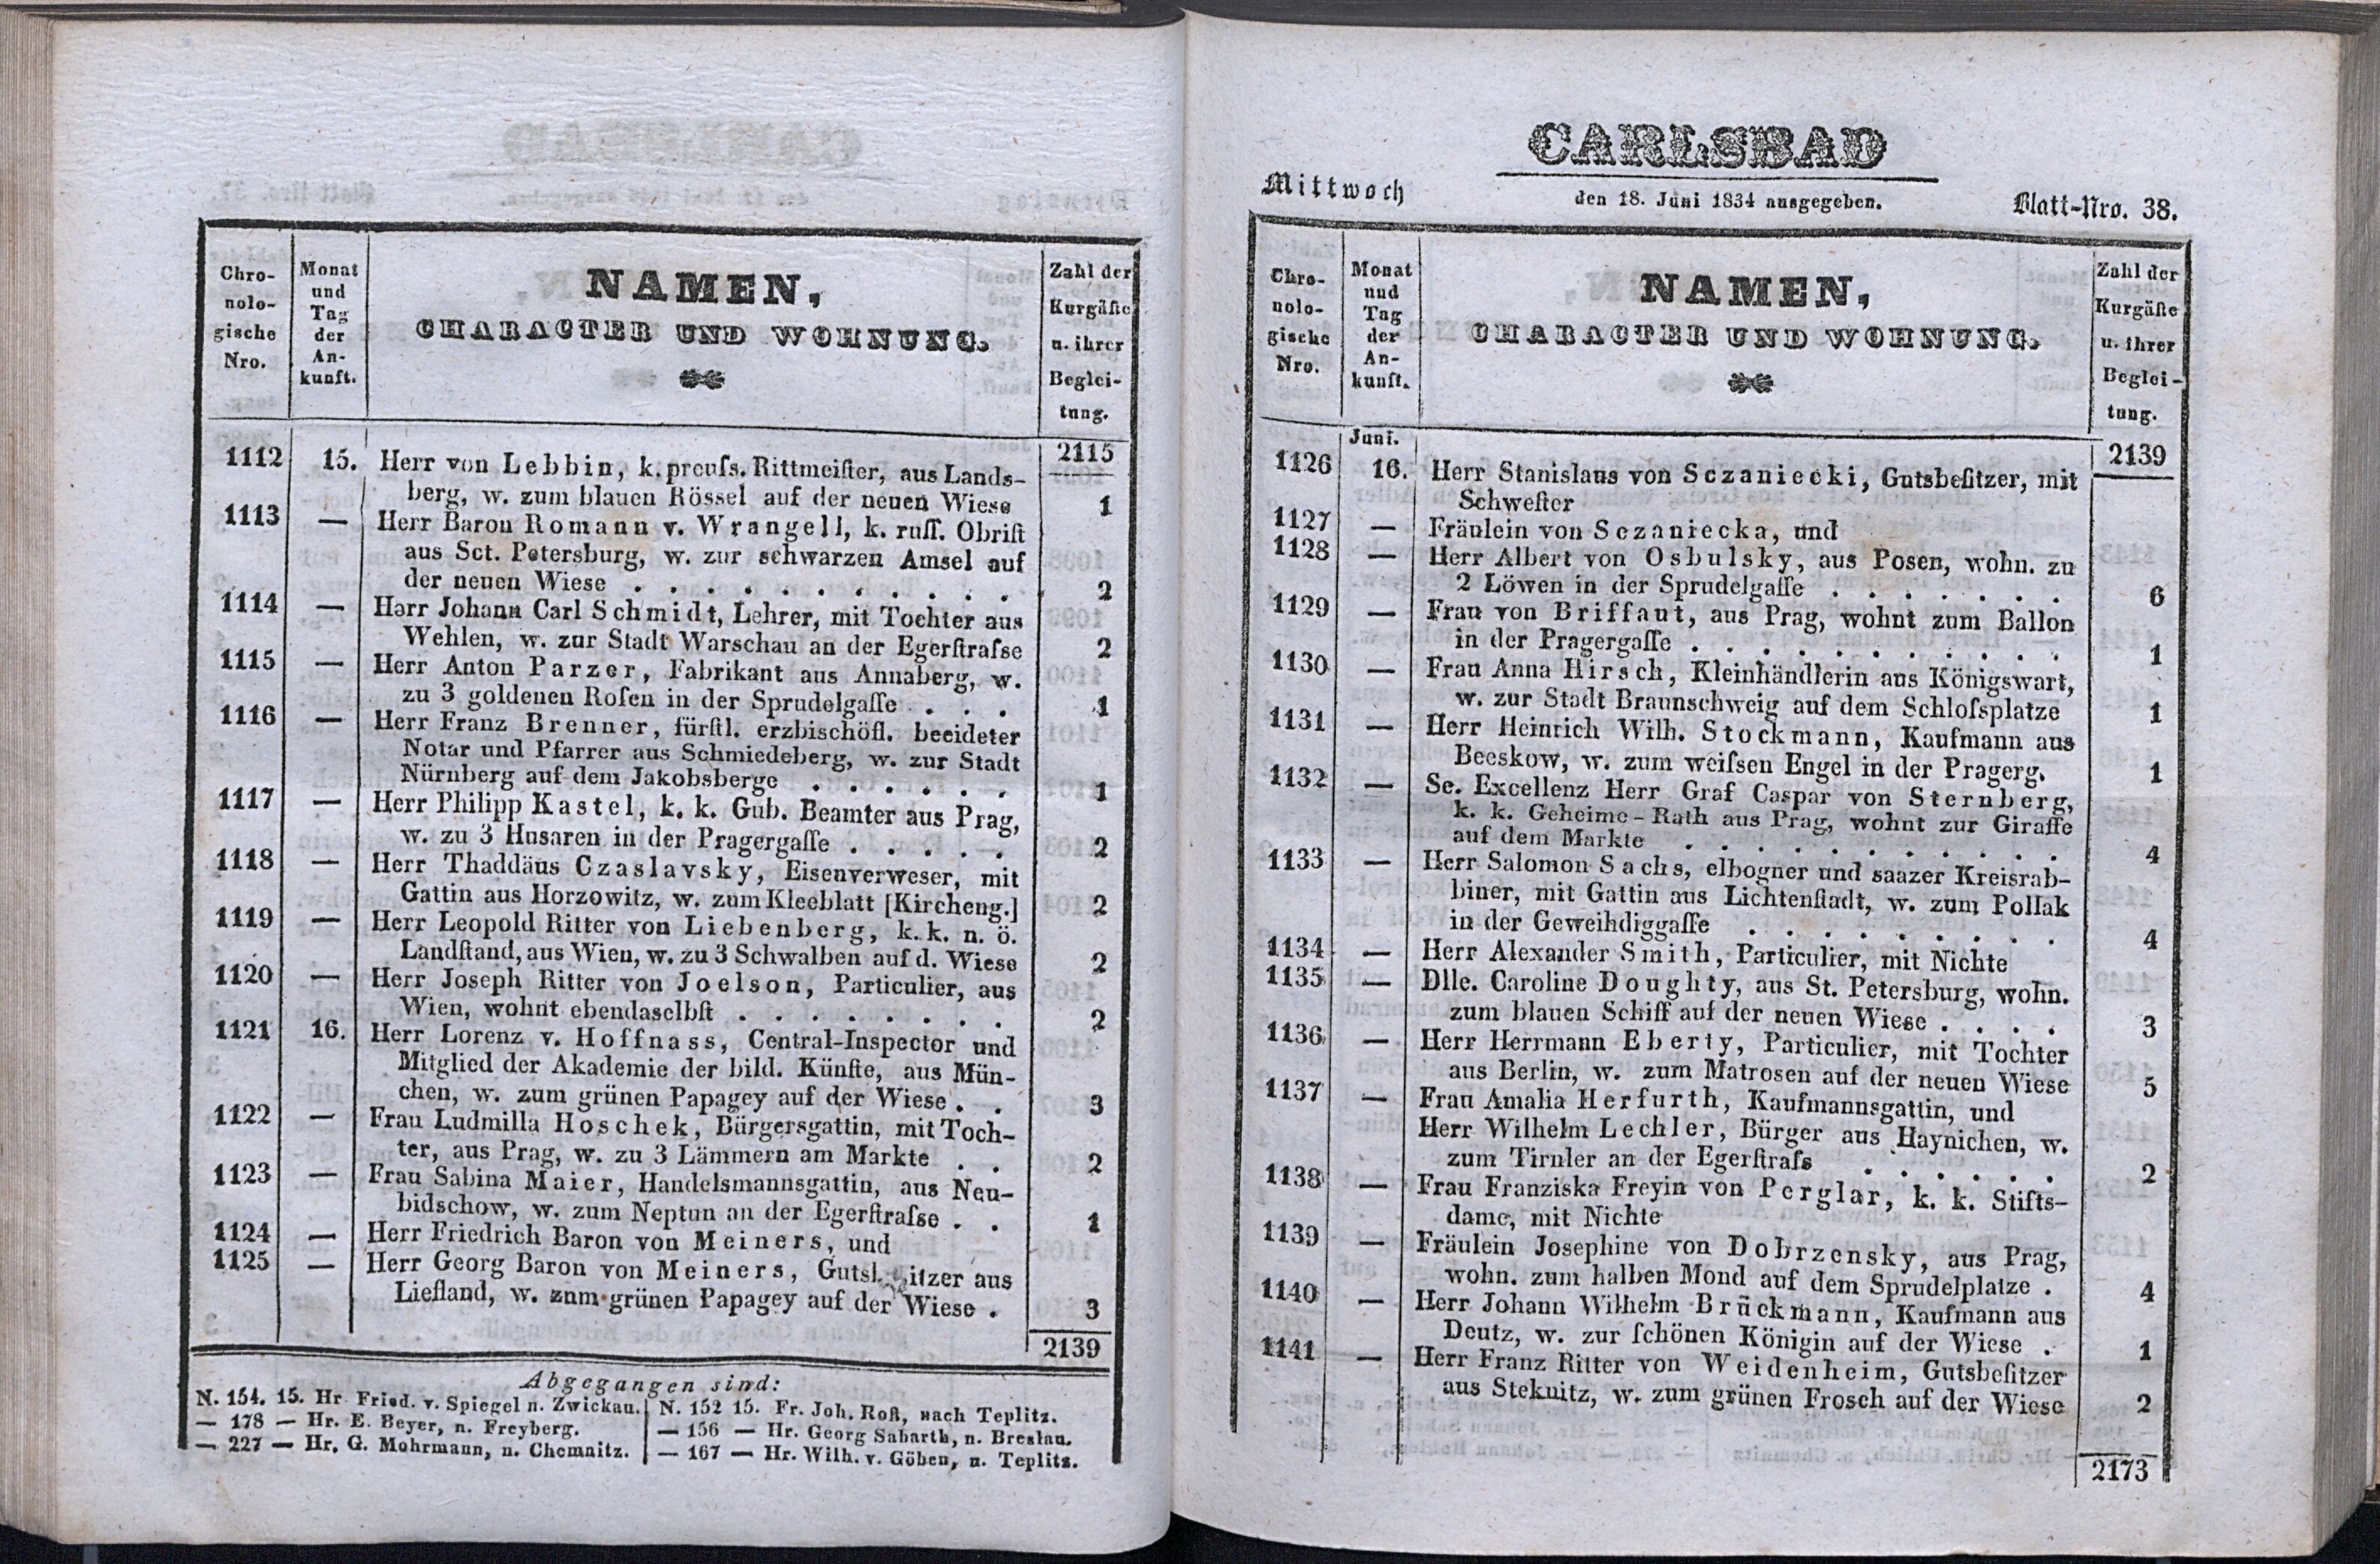 Chro-
nolo-
gische
Nro.
Monat
und
Tag
der
An-
kunft.
NAMEN,
CHARACTER UND WOHNUNG.
Zahl der
Kurgäſte
u. ihrer
Beglei-
tung.
2115
1112 15. Herr von Lebbin, k. preuſs. Rittmeiſter, aus Lands-
berg, w. zum blauen Rössel auf der neuen Wiese 1
1113 — Herr Baron Romann v. Wrangell, k. ruſſ. Obriſt
aus Sct. Petersburg, w. zur schwarzen Amsel auf
der neuen Wiese . . . . . . . . . . . 2
1114 — Herr Johann Carl Schmidt, Lehrer, mit Tochter aus
Wehlen, w. zur Stadt Warschau an der Egerſtraſse 2
1115 — Herr Anton Parzer, Fabrikant aus Annaberg, w.
zu 3 goldenen Roſen in der Sprudelgaſſe . . . 1
1116 — Herr Franz Brenner, fürſtl. erzbischöfl. beeideter
Notar und Pfarrer aus Schmiedeberg, w. zur Stadt
Nürnberg auf dem Jakobsberge . . . . . . 1
1117 — Herr Philipp Kastel, k. k. Gub. Beamter aus Prag,
w. zu 3 Husaren in der Pragergaſſe . . . . . 2
1118 — Herr Thaddäus Czaslavsky, Eisenverweser, mit
Gattin aus Horzowitz, w. zum Kleeblatt [Kircheng.] 2
1119 — Herr Leopold Ritter von Liebenberg, k. k. n. ö.
Landſtand, aus Wien, w. zu 3 Schwalben auf d. Wiese 2
1120 — Herr Joseph Ritter von Joelson, Particulier, aus
Wien, wohnt ebendaselbſt . . . . . . . . 2
1121 16. Herr Lorenz v. Hoffnass, Central-Inspector und
Mitglied der Akademie der bild. Künſte, aus Mün-
chen, w. zum grünen Papagey auf der Wiese . . 3
1122 — Frau Ludmilla Hoschek, Bürgersgattin, mit Toch-
ter, aus Prag, w. zu 3 Lämmern am Markte . . 2
1123 — Frau Sabina Maier, Handelsmannsgattin, aus Neu-
bidschow, w. zum Neptun an der Egerſtraſse . . 1
1124 — Herr Friedrich Baron von Meiners, und
1125 — Herr Georg Baron von Meiners, aus
Liefland, w. zum grünen Papagey auf der Wiese . 3
2139
Abgegangen sind:
N. 154. 15. Hr. Fried. v. Spiegel n. Zwickau.
— 178 — Hr. E. Beyer, n. Freyberg.
— 227 — Hr. G. Mohrmann, n. Chemnitz.
N. 152 15. Fr. Joh. Roſt, nach Teplitz.
— 156 — Hr. Georg Sabarth, n. Breslau.
— 167 — Hr. Wilh. v. Göben, n. Teplitz.
CARLSBAD
Mittwoch den 18. Juni 1834 ausgegeben. Blatt-Nro. 38.
Chro-
nolo-
gische
Nro.
Monat
und
Tag
der
An-
kunft.
NAMEN,
CHARACTER UND WOHNUNG.
Zahl der
Kurgäſte
u. ihrer
Beglei-
tung.
Juni. 2139
1126 16. Herr Stanislaus von Sczaniecki, Gutsbeſitzer, mit
Schweſter
1127 — Fräulein von Sczaniecka, und
1128 — Herr Albert von Osbulsky, aus Posen, wohn. zu
2 Löwen in der Sprudelgaſſe . . . . . . . 6
1129 — Frau von Briffaut, aus Prag, wohnt zum Ballon
in der Pragergaſſe . . . . . . . . . . . 1
1130 — Frau Anna Hirsch, Kleinhändlerin aus Königswart,
w. zur Stadt Braunschweig auf dem Schloſsplatze 1
1131 — Herr Heinrich Wilh. Stockmann, Kaufmann aus
Beeskow, w. zum weiſsen Engel in der Pragerg. 1
1132 — Se. Excellenz Herr Graf Caspar von Sternberg,
k. k. Geheime-Rath aus Prag, wohnt zur Giraffe
auf dem Markte . . . . . . . . . . . 4
1133 — Herr Salomon Sachs, elbogner und saazer Kreisrab-
biner, mit Gattin aus Lichtenſtadt, w. zum Pollak
in der Geweihdiggaſſe . . . . . . . . . 4
1134 — Herr Alexander Smith, Particulier, mit Nichte
1135 — Dlle. Caroline Doughty, aus St. Petersburg, wohn.
zum blauen Schiff auf der neuen Wiese . . . . 3
1136 — Herr Herrmann Eberty, Particulier, mit Tochter
aus Berlin, w. zum Matrosen auf der neuen Wiese 5
1137 — Frau Amalia Herfurth, Kaufmannsgattin, und
Herr Wilhelm Lechler, Bürger aus Haynichen, w.
zum Tirnler an der Egerſtraſs . . . . . . 2
1138 — Frau Franziska Freyin von Perglar, k. k. Stifts-
dame, mit Nichte
1139 — Fräulein Josephine von Dobrzensky, aus Prag,
wohn. zum halben Mond auf dem Sprudelplatze . 4
1140 — Herr Johann Wilhelm Brückmann, Kaufmann aus
Deutz, w. zur ſchönen Königin auf der Wiese . 1
1141 — Herr Franz Ritter von Weidenheim, Gutsbeſitzer
aus Steknitz, w. zum grünen Frosch auf der Wiese 2
2173